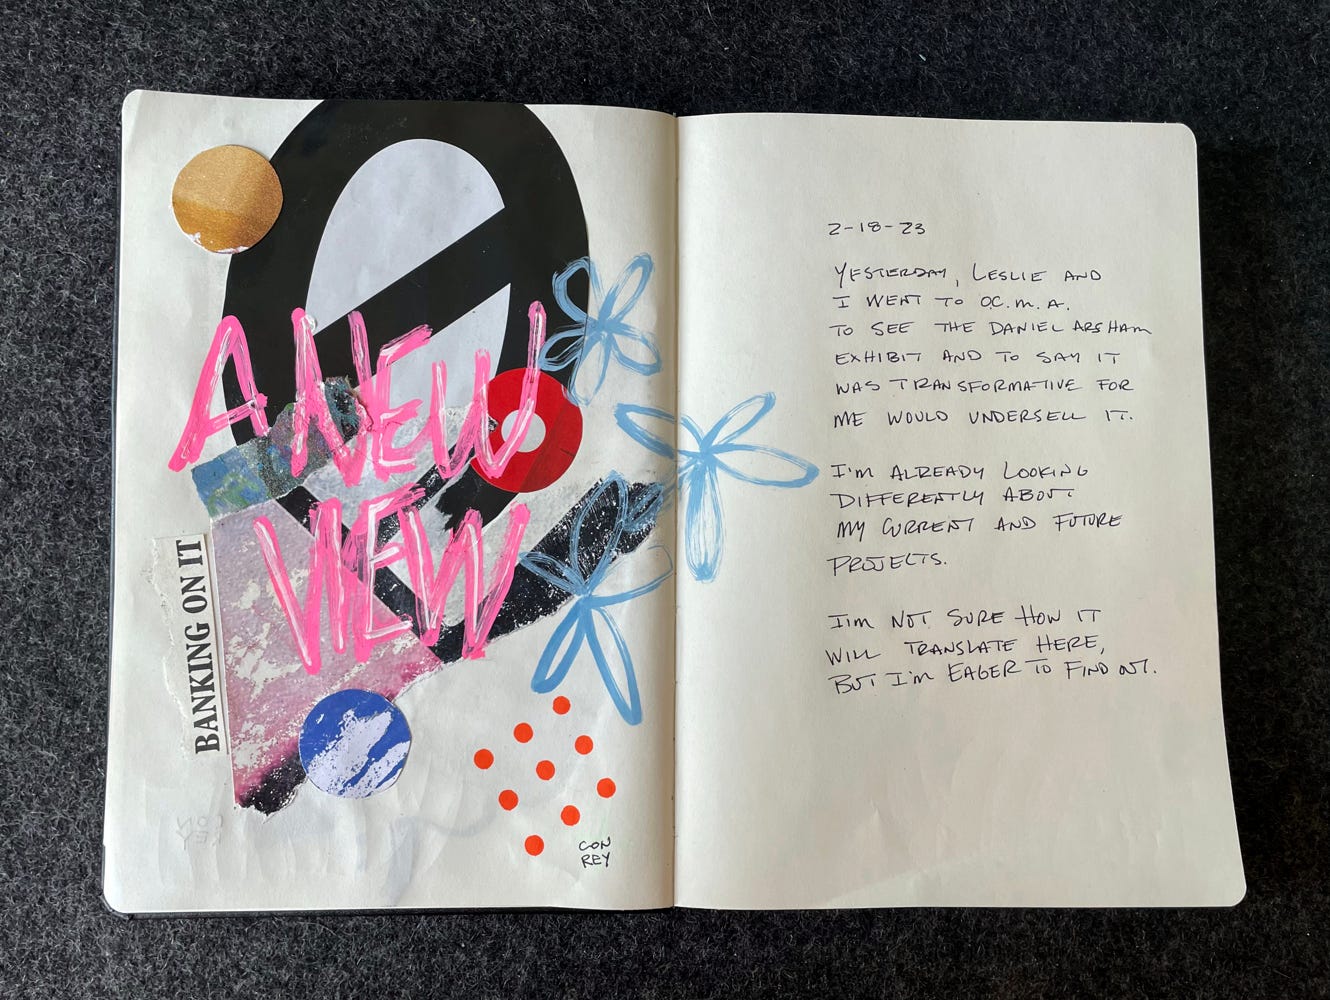 A NEW
VIEW
BANKING ON IT
CON
REY
2-18-23
YESTERDAY, LESLIE AND
I WENT TO O.C.M.A.
TO SEE THE DANIEL ARSHAM
EXHIBIT AND TO SAY IT
WAS TRANSFORMATIVE FOR
ME WOULD UNDERSELL IT.
I'M ALREADY LOOKING
DIFFERENTLY ABOUT
MY CURRENT AND FUTURE
PROJECTS.
I'M NOT SURE HOW IT
WILL TRANSLATE HERE,
BUT I'M EAGER TO FIND OUT.